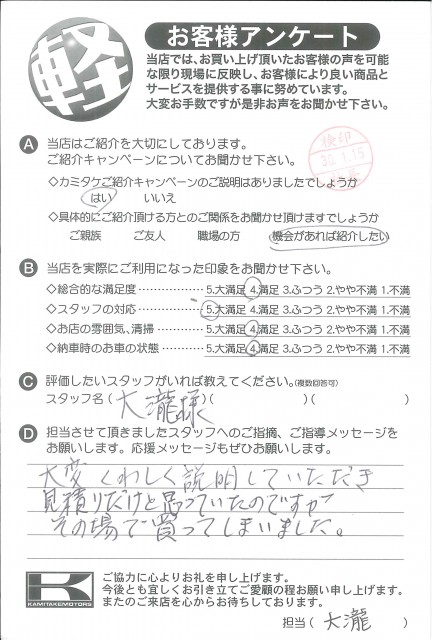 軽
お客様アンケート
当店では、お買い上げ頂いたお客様の声を可能
な限り現場に反映し、お客様により良い商品と
サービスを提供する事に努めています。
大変お手数ですが是非お声をお聞かせ下さい。
A 当店はご紹介を大切にしております。
ご紹介キャンペーンについてお聞かせ下さい。
検印
30.1.15
◇カミタケご紹介キャンペーンのご説明はありましたでしょうか
はい いいえ
◇具体的にご紹介頂ける方とのご関係をお聞かせ頂けますでしょうか
ご親族 ご友人 職場の方 機会があれば紹介したい
B 当店を実際にご利用になった印象をお聞かせ下さい。
◇総合的な満足度 …………… 5.大満足 4.満足 3.ふつう 2.やや不満 1.不満
◇スタッフの対応 …………… 5.大満足 4.満足 3.ふつう 2.やや不満 1.不満
◇お店の雰囲気、清掃 ……… 5.大満足 4.満足 3.ふつう 2.やや不満 1.不満
◇納車時のお車の状態 ……… 5.大満足 4.満足 3.ふつう 2.やや不満 1.不満
C 評価したいスタッフがいれば教えてください。(複数回答可)
スタッフ名(大瀧様)( )( )
D 担当させて頂きましたスタッフへのご指摘、ご指導メッセージを
お願いします。応援メッセージもぜひお願いします。
大変くわしく説明していただき
見積りだけと思っていたのですが
その場で買ってしまいました。
K
KAMITAKEMOTORS
ご協力に心よりお礼を申し上げます。
今後とも宜しくお引き立てご愛顧の程お願い申し上げます。
またのご来店を心からお待ちしております。
担当(大瀧)